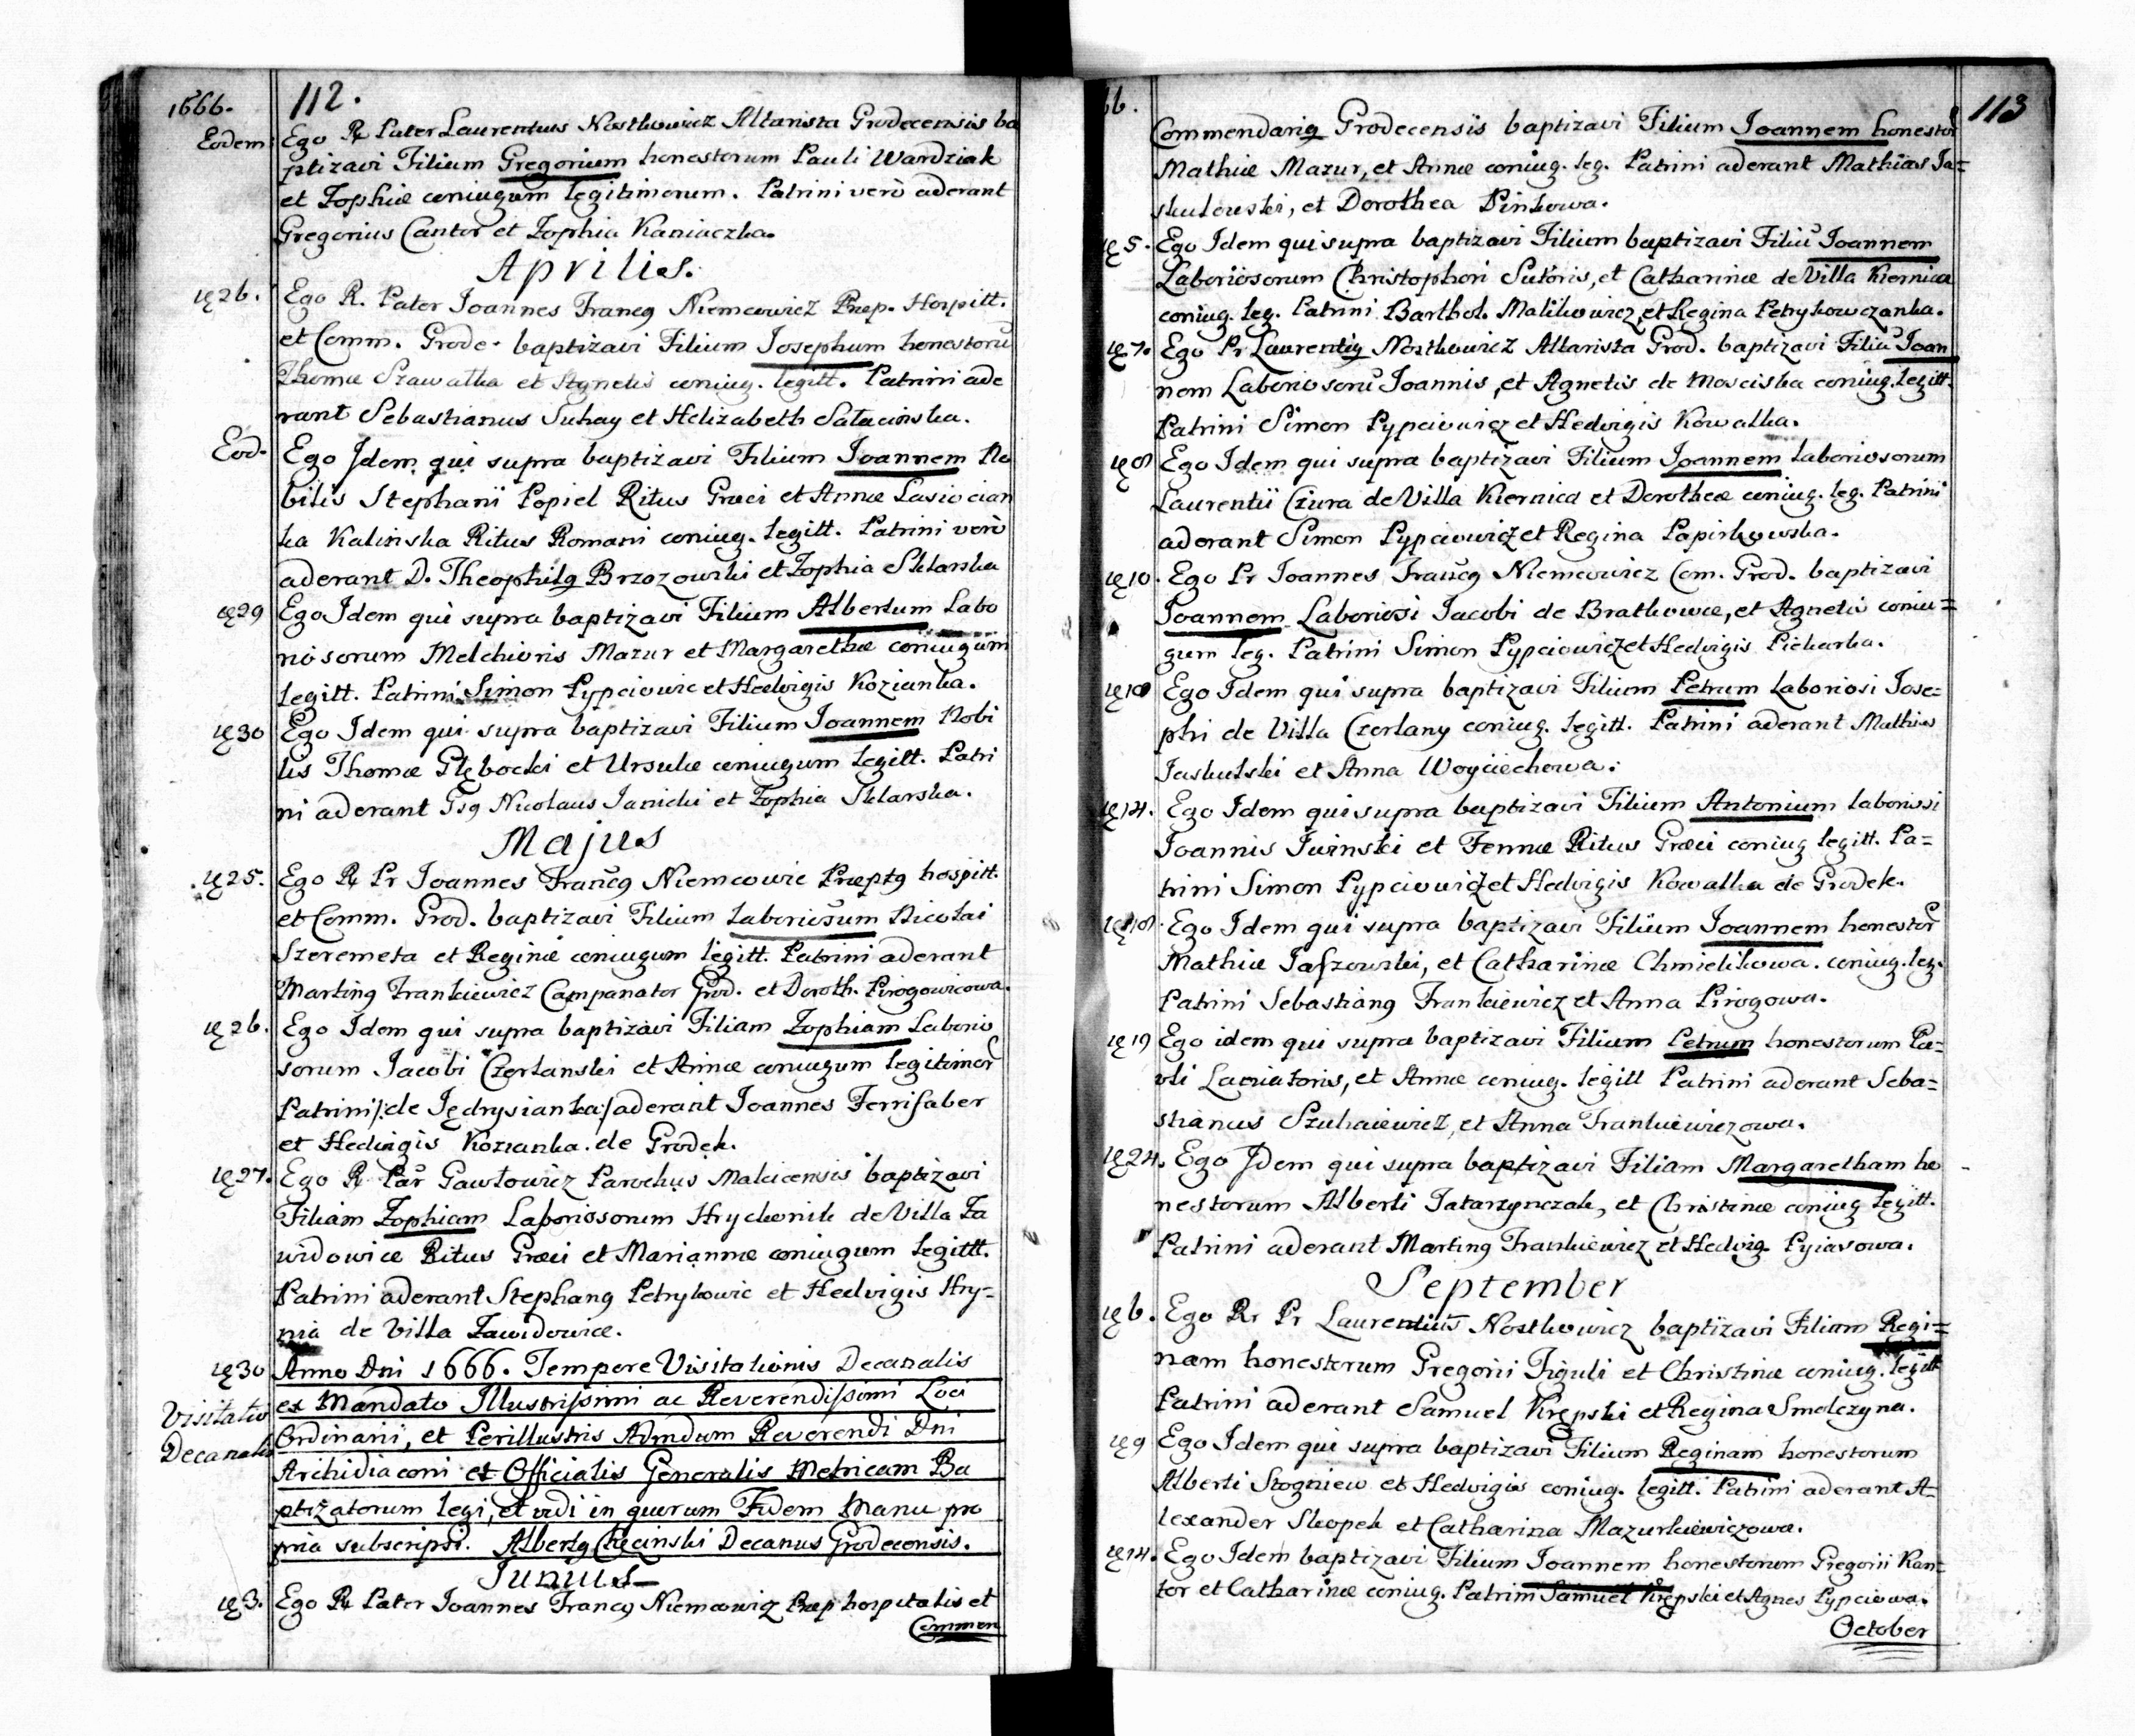 1666.
112.
Eodem Ego R Pater Laurentius Nostkowicz Altarista Grodecensis ba
ptizavi Filium Gregorium honestorum Pauli Wardziak
et Zophiæ coniugum legitimorum. Patrini verò aderant
Gregorius Cantor et Zophia Kaniaczka.
Aprilis.
26. Ego R. Pater Joannes Franc9 Niemcowicz Præp. Hospitt.
et Comm. Grode. baptizavi Filium Josephum honestorũ
Thomæ Szawałka et Agnetis coniug. legitt. Patrini ade
rant Sebastianus Suhay et Helizabeth Sałacinska.
Eod. Ego Jdem qui supra baptizavi Filium Joannem No
bilis Stephanï Popiel Ritus Græci et Annæ Lasiocian
ka Kalinska Ritus Romani coniug. legitt. Patrini verò
aderant D. Theophil9 Brzozowski et Zophia Sklarska
29 Ego Idem qui supra baptizavi Filium Albertum Labo
riosorum Melchioris Mazur et Margarethæ coniugum
legitt. Patrini Simon Pypciowic et Hedvigis Kozianka.
30 Ego Idem qui supra baptizavi Filium Joannem Nobi
lis Thomæ Głębocki et Ursulæ coniugum legitt. Patri
ni aderant Gsq Nicolaus Janicki et Zophia Sklarska.
Majus
25. Ego R Pr Joannes Franc9 Niemcowic Præpt9 hospitt.
et Comm. Grod. baptizavi Filium Laboriosum Nicolai
Szeremeta et Reginæ coniugum legitt. Patrini aderant
Martin9 Frankiewicz Campanator Grod. et Doroth. Pirogowicowa.
26. Ego Idem qui supra baptizavi Filiam Zophiam Laborio
sorum Jacobi Czerlanski et Annæ coniugum legitimor
Patrini /:de Jędrysianka:/ aderant Joannes Ferrifaber
et Hedvigis Kozianka de Grodek.
27. Ego R Par Gawłowicz Parochus Malcicensis baptizavi
Filiam Zophiam Laboriosorum Hryckonik de Villa Za
widowice Ritus Græci et Mariannæ coniugum legittt.
Patrini aderant Stephan9 Petrykowic et Hedvigis Hry=
nia de Villa Zawidowice.
30 Anno Dni 1666. Tempore Visitationis Decanalis
Visitatio ex Mandato Illustrissimi ac Reverendissimi Loci
Decanalis Ordinarii, et Perillustris Admdum Reverendi Dni
Archidiaconi et Officialis Generalis Metricam Ba
ptizatorum legi, et vidi in quorum Fidem Manu pro
pria subscripsi. Albert9 Chęcinski Decanus Grodecensis.
Junius
3. Ego R Pater Joannes Franc9 Niemcowicz Præp hospitalis et
Commen
66.
113
Commendari9 Grodecensis baptizavi Filium Joannem honestor
Mathiæ Mazur, et Annæ coniug. leg. Patrini aderant Mathias Ja=
skulowski, et Dorothea Pinkowa.
5. Ego Idem qui supra baptizavi Filium baptizavi Filiũ Joannem
Laboriosorum Christophori Sutoris, et Catharinæ de Villa Kiernica
coniug. leg. Patrini Barthol. Malikowicz, et Regina Petrykowczanka.
7. Ego Pr Laurenti9 Nostkowicz Altarista Grod. baptizavi Filiũ Joan
nem Laboriosorũ Joannis, et Agnetis de Mosciska coniug. legitt.
Patrini Simon Pypciowicz et Hedvigis Kowalka.
8 Ego Idem qui supra baptizavi Filium Joannem laboriosorum
Laurentii Cziura de Villa Kiernica et Dorotheæ coniug. leg. Patrini
aderant Simon Pypciowicz et Regina Papirkowska.
10. Ego Pr Joannes Franc9 Niemcowicz Com. Grod. baptizavi
Joannem Laboriosi Jacobi de Bratkowice, et Agnetis coniu=
gum leg. Patrini Simon Pypciowicz et Hedvigis Piekarka.
Ego Idem qui supra baptizavi Filium Petrum Laboriosi Jose=
phi de Villa Czerlany coniug. legitt. Patrini aderant Mathias
Jaskulski et Anna Woyciechowa.
14. Ego Idem qui supra baptizavi Filium Antonium laboriosi
Joannis Jwinski et Fennæ Ritus Græci coniug legitt. Pa=
trini Simon Pypciowicz et Hedvigis Kowalka de Grodek.
18. Ego Idem qui supra baptizavi Filium Joannem honestor
Mathiæ Jaszowski, et Catharinæ Chmielikowa. coniug. leg.
Patrini Sebastian9 Frankiewicz et Anna Pirogowa.
19 Ego idem qui supra baptizavi Filium Petrum honestorum Pa=
vli Laniatoris, et Annæ coniug. legitt Patrini aderant Seba=
stianus Szuhaiewicz, et Anna Frankiewiczowa.
24. Ego Jdem qui supra baptizavi Filiam Margaretham ho
nestorum Alberti Tatarzynczak, et Christinæ coniug legitt.
Patrini aderant Martin9 Frankiewicz et Hedvig. Pyiasowa.
September
6. Ego Rr Pr Laurentius Nostkowicz baptizavi Filiam Regi=
nam honestorum Gregorii Figuli et Christinæ coniug. legitt
Patrini aderant Samuel Krępski et Regina Smolczyna.
9 Ego Idem qui supra baptizavi Filium Reginam honestorum
Alberti Stogniew et Hedvigis coniug. legitt. Patrini aderant A=
lexander Skopek et Catharina Mazurkiewiczowa.
14. Ego Idem baptizavi Filium Joannem honestorum Gregorii Kan=
tor et Catharinæ coniug. Patrini Samuel Krępski et Agnes Pypciowa.
October